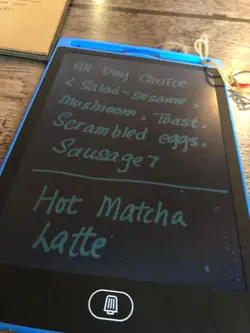 All Day Choice
< Salad-sesame,
mushroom, Toast,
Scrambled eggs,
Sausage >
Hot Matcha
Latte